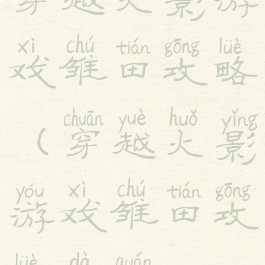 穿越火影游
xì chú tián gōng lüè
戏雏田攻略
chuān yuè huǒ yǐng
(穿越火影
yóu xì chú tián gōng
游戏雏田攻
lüè dà quán